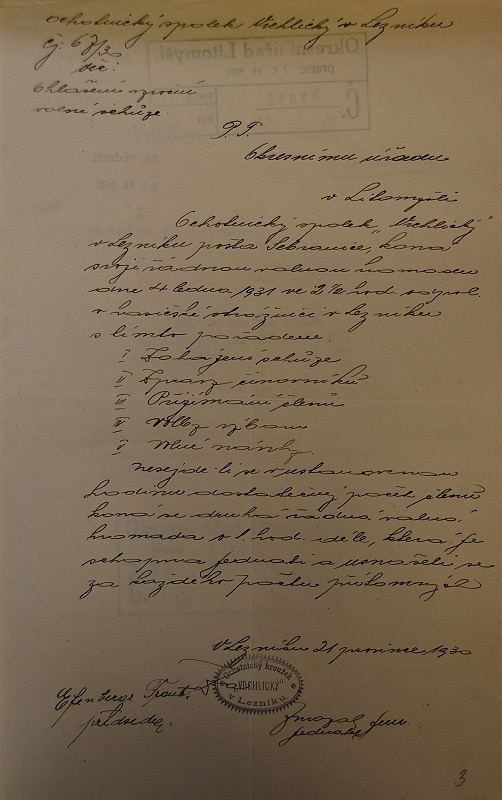 Ochotnický spolek Vrchlický v Lezníku
čj: 67/30
Věc:
Ohlášení
valné schůze.
P. T.
Okresnímu úřadu
v Litomyšli
Ochotnický spolek „Vrchlický"
v Lezníku pošta Sebranice, koná
svoji řádnou valnou hromadu
dne 4 ledna 1931 ve 2 hod. odpol.
v hasičské strážnici v Lezníku
s tímto pořadem.
I Zahájení schůze
II Zprávy činovníků
III Přijímání členů
IV Volby výboru
V Volné návrhy.
Nesejde-li se v ustanovenou
hodinu dostatečný počet členů
koná se druhá řádná valná
hromada o 1 hod. déle, která je
schopna jednati a usnášeti se
za každého počtu přítomných
V Lezníku 21 prosince 1930
Ochotnický kroužek
"VRCHLICKÝ"
v Lezníku.
předseda.
jednatel
3